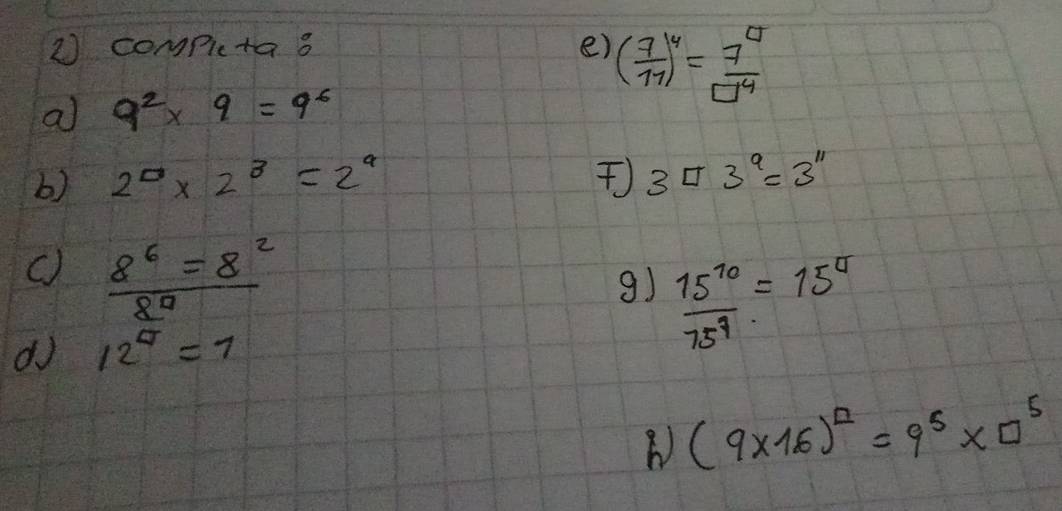 2) completa :
a) 9² x 9 = 9⁶
b) 2□ x 2³ = 2⁹
c) 8⁶ = 8²
8□
d) 12□ = 1
e) (7/11)⁴ = 7□/□⁴
F) 3 □ 3⁹ = 3¹¹
g) 15¹⁰/15⁷ = 15□
h) (9x16)□ = 9⁵ x □⁵